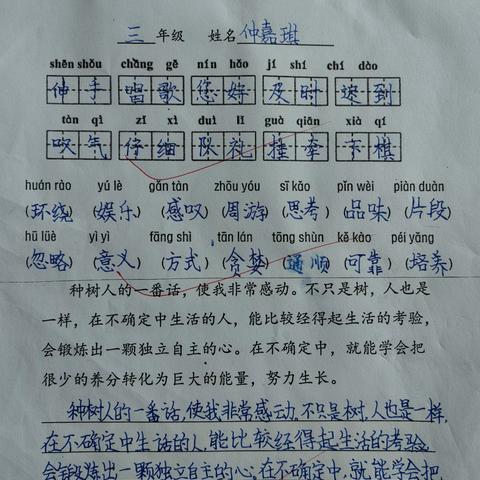 三 年级 姓名 仲嘉琪
shēn shǒu chàng gē nín hǎo jí shí chí dào
伸手 唱歌 您好 及时 迟到
tàn qì zǐ xì duì lǐ guà qiān xià qí
叹气 仔细 队礼 挂牵 下棋
huán rào yú lè gǎn tàn zhōu yóu sī kǎo pǐn wèi piàn duàn
(环绕) (娱乐) (感叹) (周游) (思考) (品味) (片段)
hū lüè yì yì fāng shì tān lán tōng shùn kě kào péi yǎng
(忽略) (意义) (方式) (贪婪) (通顺) (可靠) (培养)
种树人的一番话，使我非常感动。不只是树，人也是
一样，在不确定中生活的人，能比较经得起生活的考验，
会锻炼出一颗独立自主的心。在不确定中，就能学会把
很少的养分转化为巨大的能量，努力生长。
种树人的一番话，使我非常感动。不只是树，人也是一样，
在不确定中生活的人，能比较经得起生活的考验
会锻炼出一颗独立自主的心。在不确定中，就能学会把